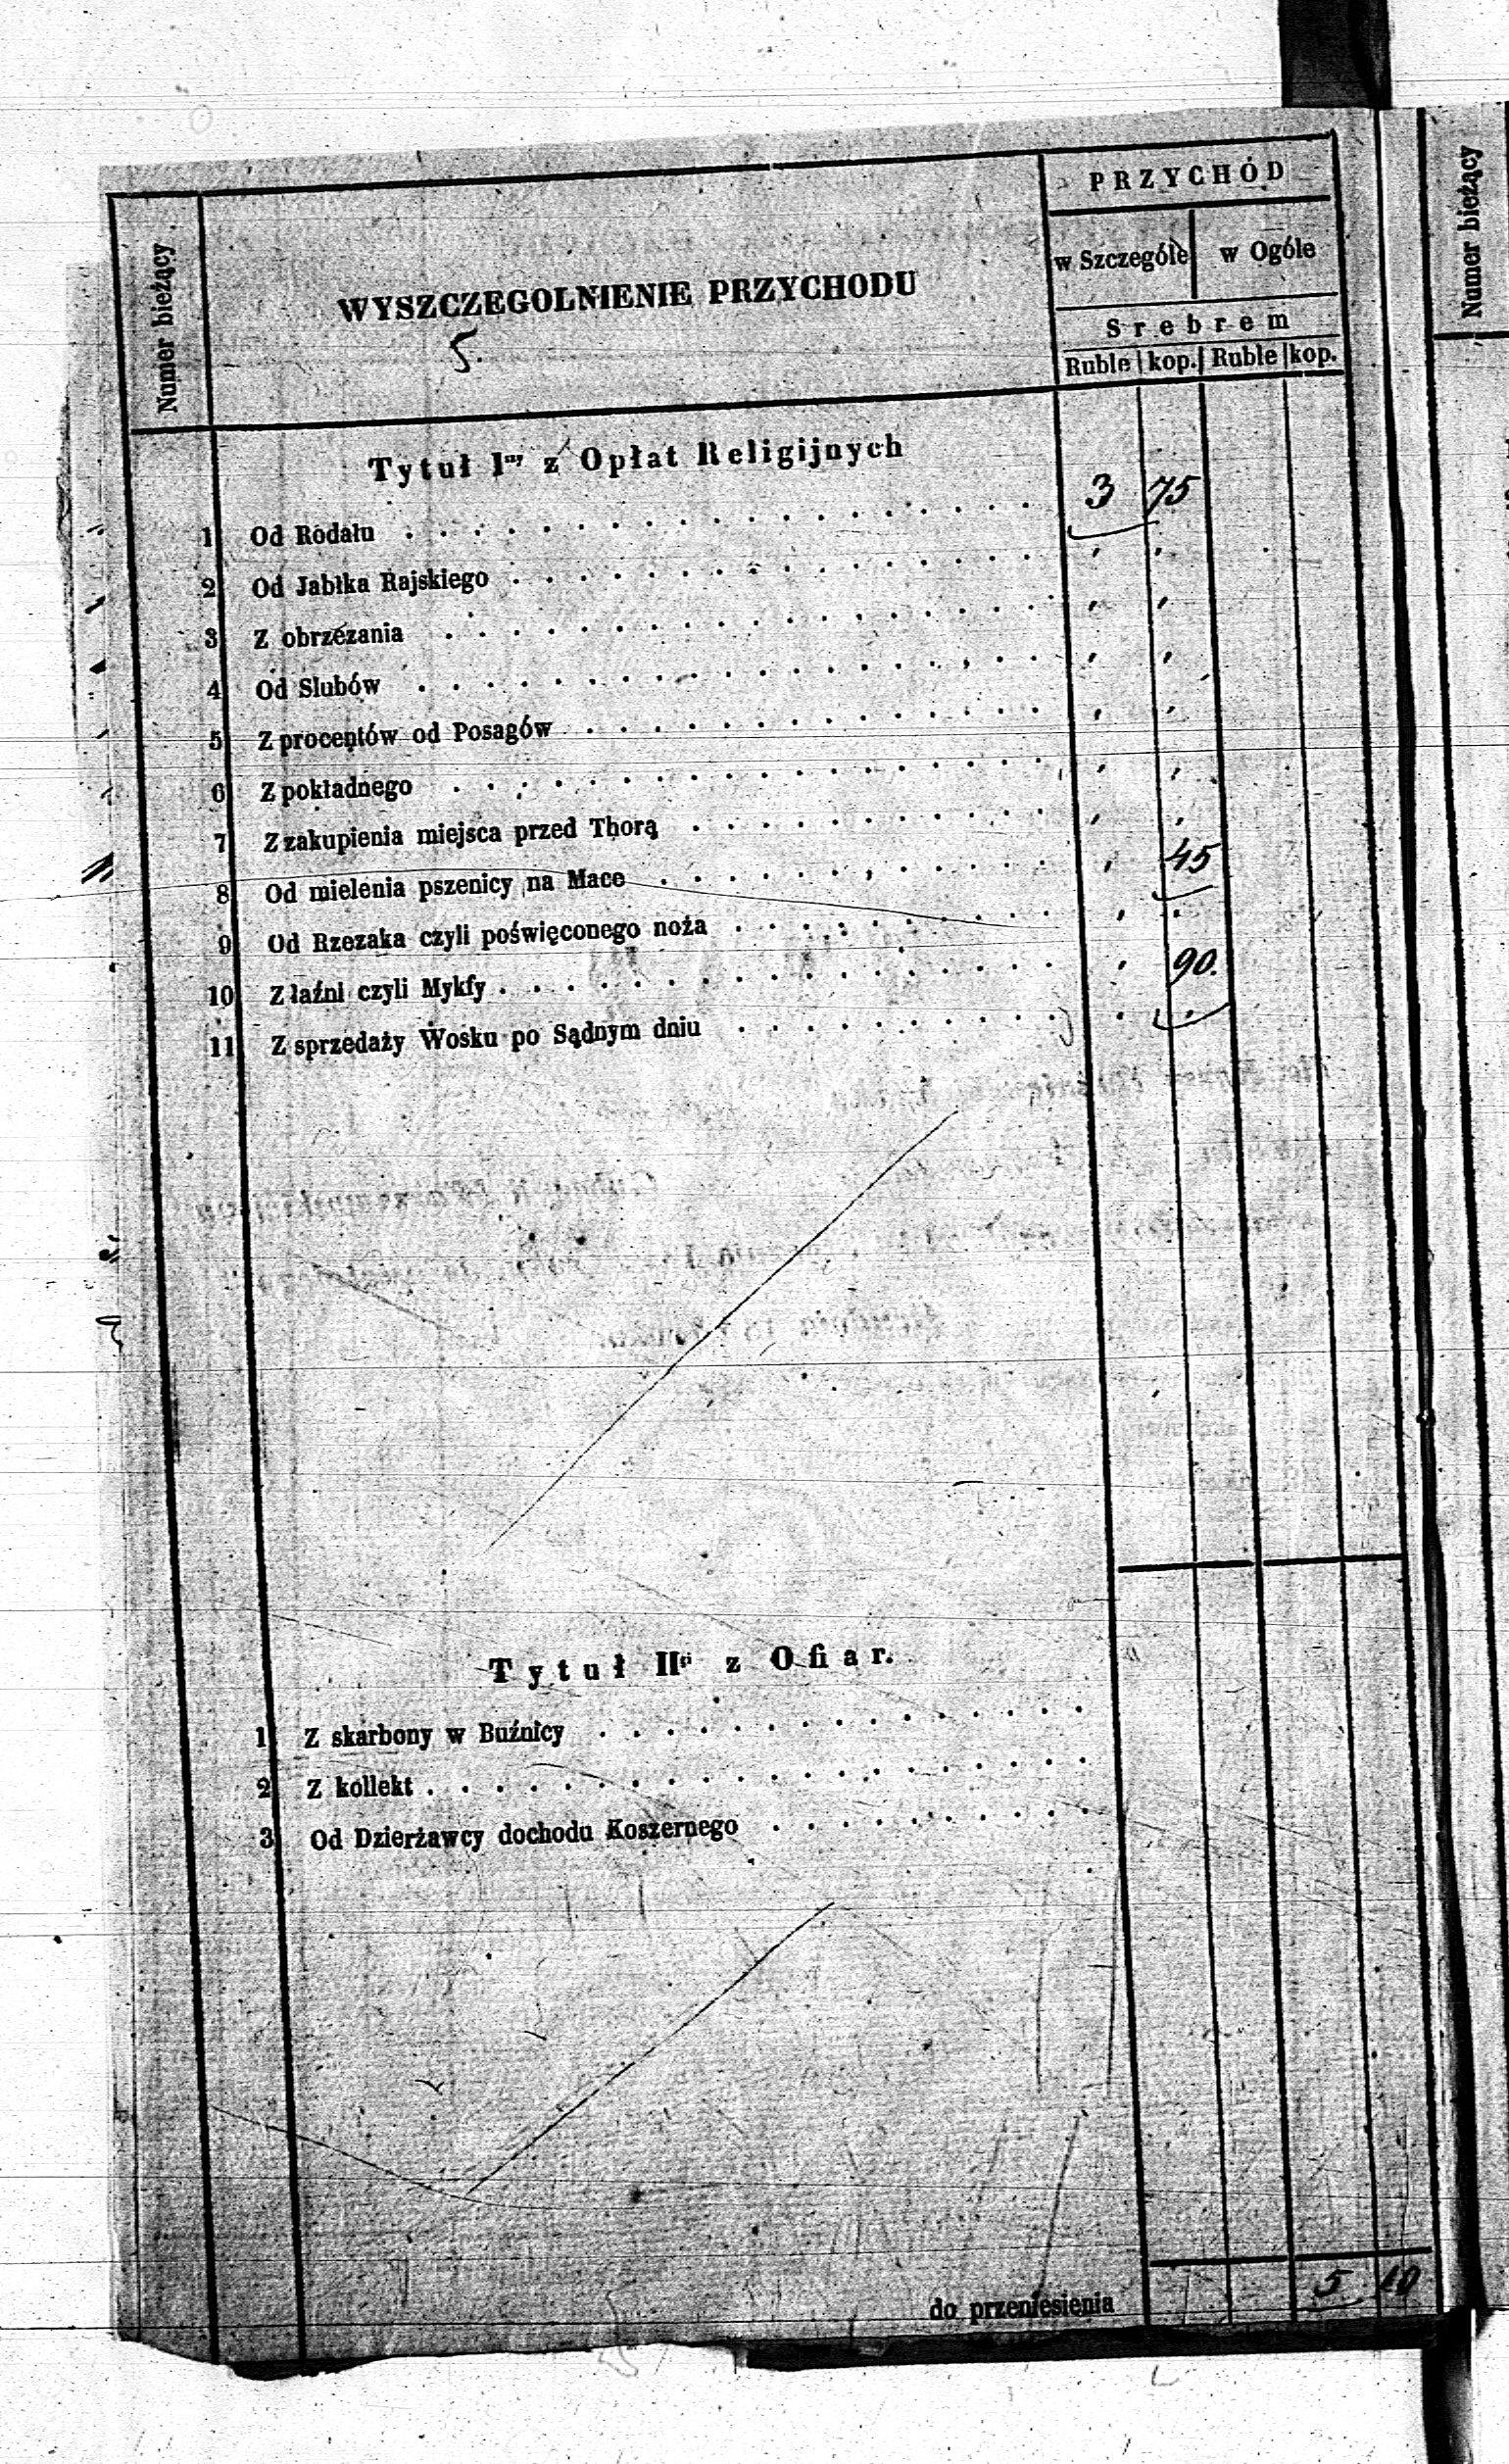 Numer bieżący
WYSZCZEGOLNIENIE PRZYCHODU
5.
PRZYCHÓD
w Szczególe w Ogóle
Srebrem
Ruble kop. Ruble kop.
Numer bieżący
Tytuł Iny z Opłat Religijnych
1 Od Rodału . . . . . 3 75
2 Od Jabłka Rajskiego . . . . .
3 Z obrzezania . . . . .
4 Od Slubów . . . . .
5 Z procentów od Posagów . . . . .
6 Z pokładnego . . . . .
7 Z zakupienia miejsca przed Thorą . . . . .
8 Od mielenia pszenicy na Mace . . . . . 45
9 Od Rzezaka czyli poświęconego noża . . . . .
10 Z łaźni czyli Mykfy . . . . . 90.
11 Z sprzedaży Wosku po Sądnym dniu . . . . .
Tytuł IIgi z Ofiar.
1 Z skarbony w Buźnicy . . . . .
2 Z kollekt . . . . .
3 Od Dzierżawcy dochodu Koszernego . . . . .
do przeniesienia 5 10